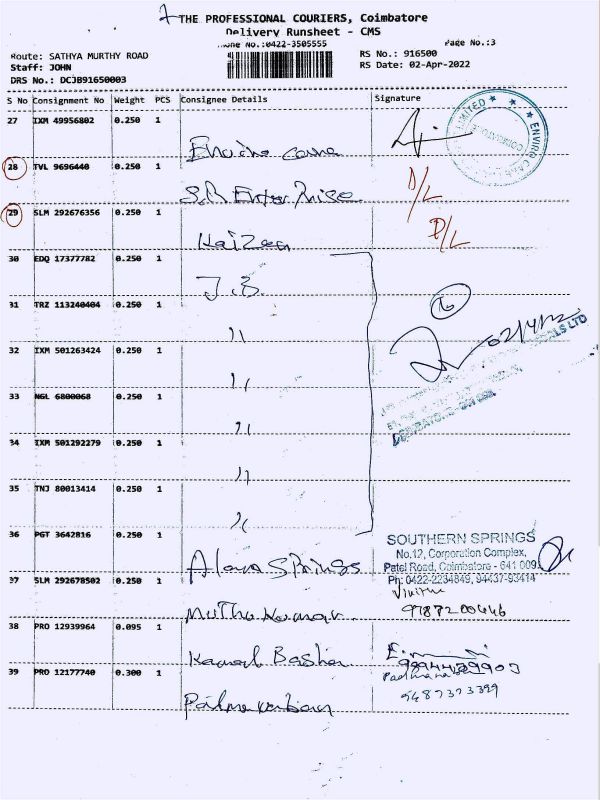 THE PROFESSIONAL COURIERS, Coimbatore
Delivery Runsheet - CMS
Phone No.:0422-3505555
Page No.:3
Route: SATHYA MURTHY ROAD
RS No.: 916500
Staff: JOHN
RS Date: 02-Apr-2022
DRS No.: DCJB91650003
S No Consignment No Weight PCS Consignee Details Signature
27 IXM 49956802 0.250 1
28 TVL 9696440 0.250 1
S.R Enter Prise D/L
29 SLM 292676356 0.250 1
Kaizen D/L
30 EDQ 17377782 0.250 1
J.B.
31 TRZ 113240404 0.250 1
"
6
02/4/22
32 IXM 501263424 0.250 1
"
33 NGL 6800068 0.250 1
"
34 IXM 501292279 0.250 1
"
35 TNJ 80013414 0.250 1
"
36 PGT 3642816 0.250 1
Springs
SOUTHERN SPRINGS
No.12, Corporation Complex,
Patel Road, Coimbatore - 641 009.
Ph: 0422-2234849, 94437-93414
37 SLM 292678502 0.250 1
Muthu Kumar
9787200446
38 PRO 12939964 0.095 1
Kamal Basha
39 PRO 12177740 0.300 1
Padmanaban
9487373399